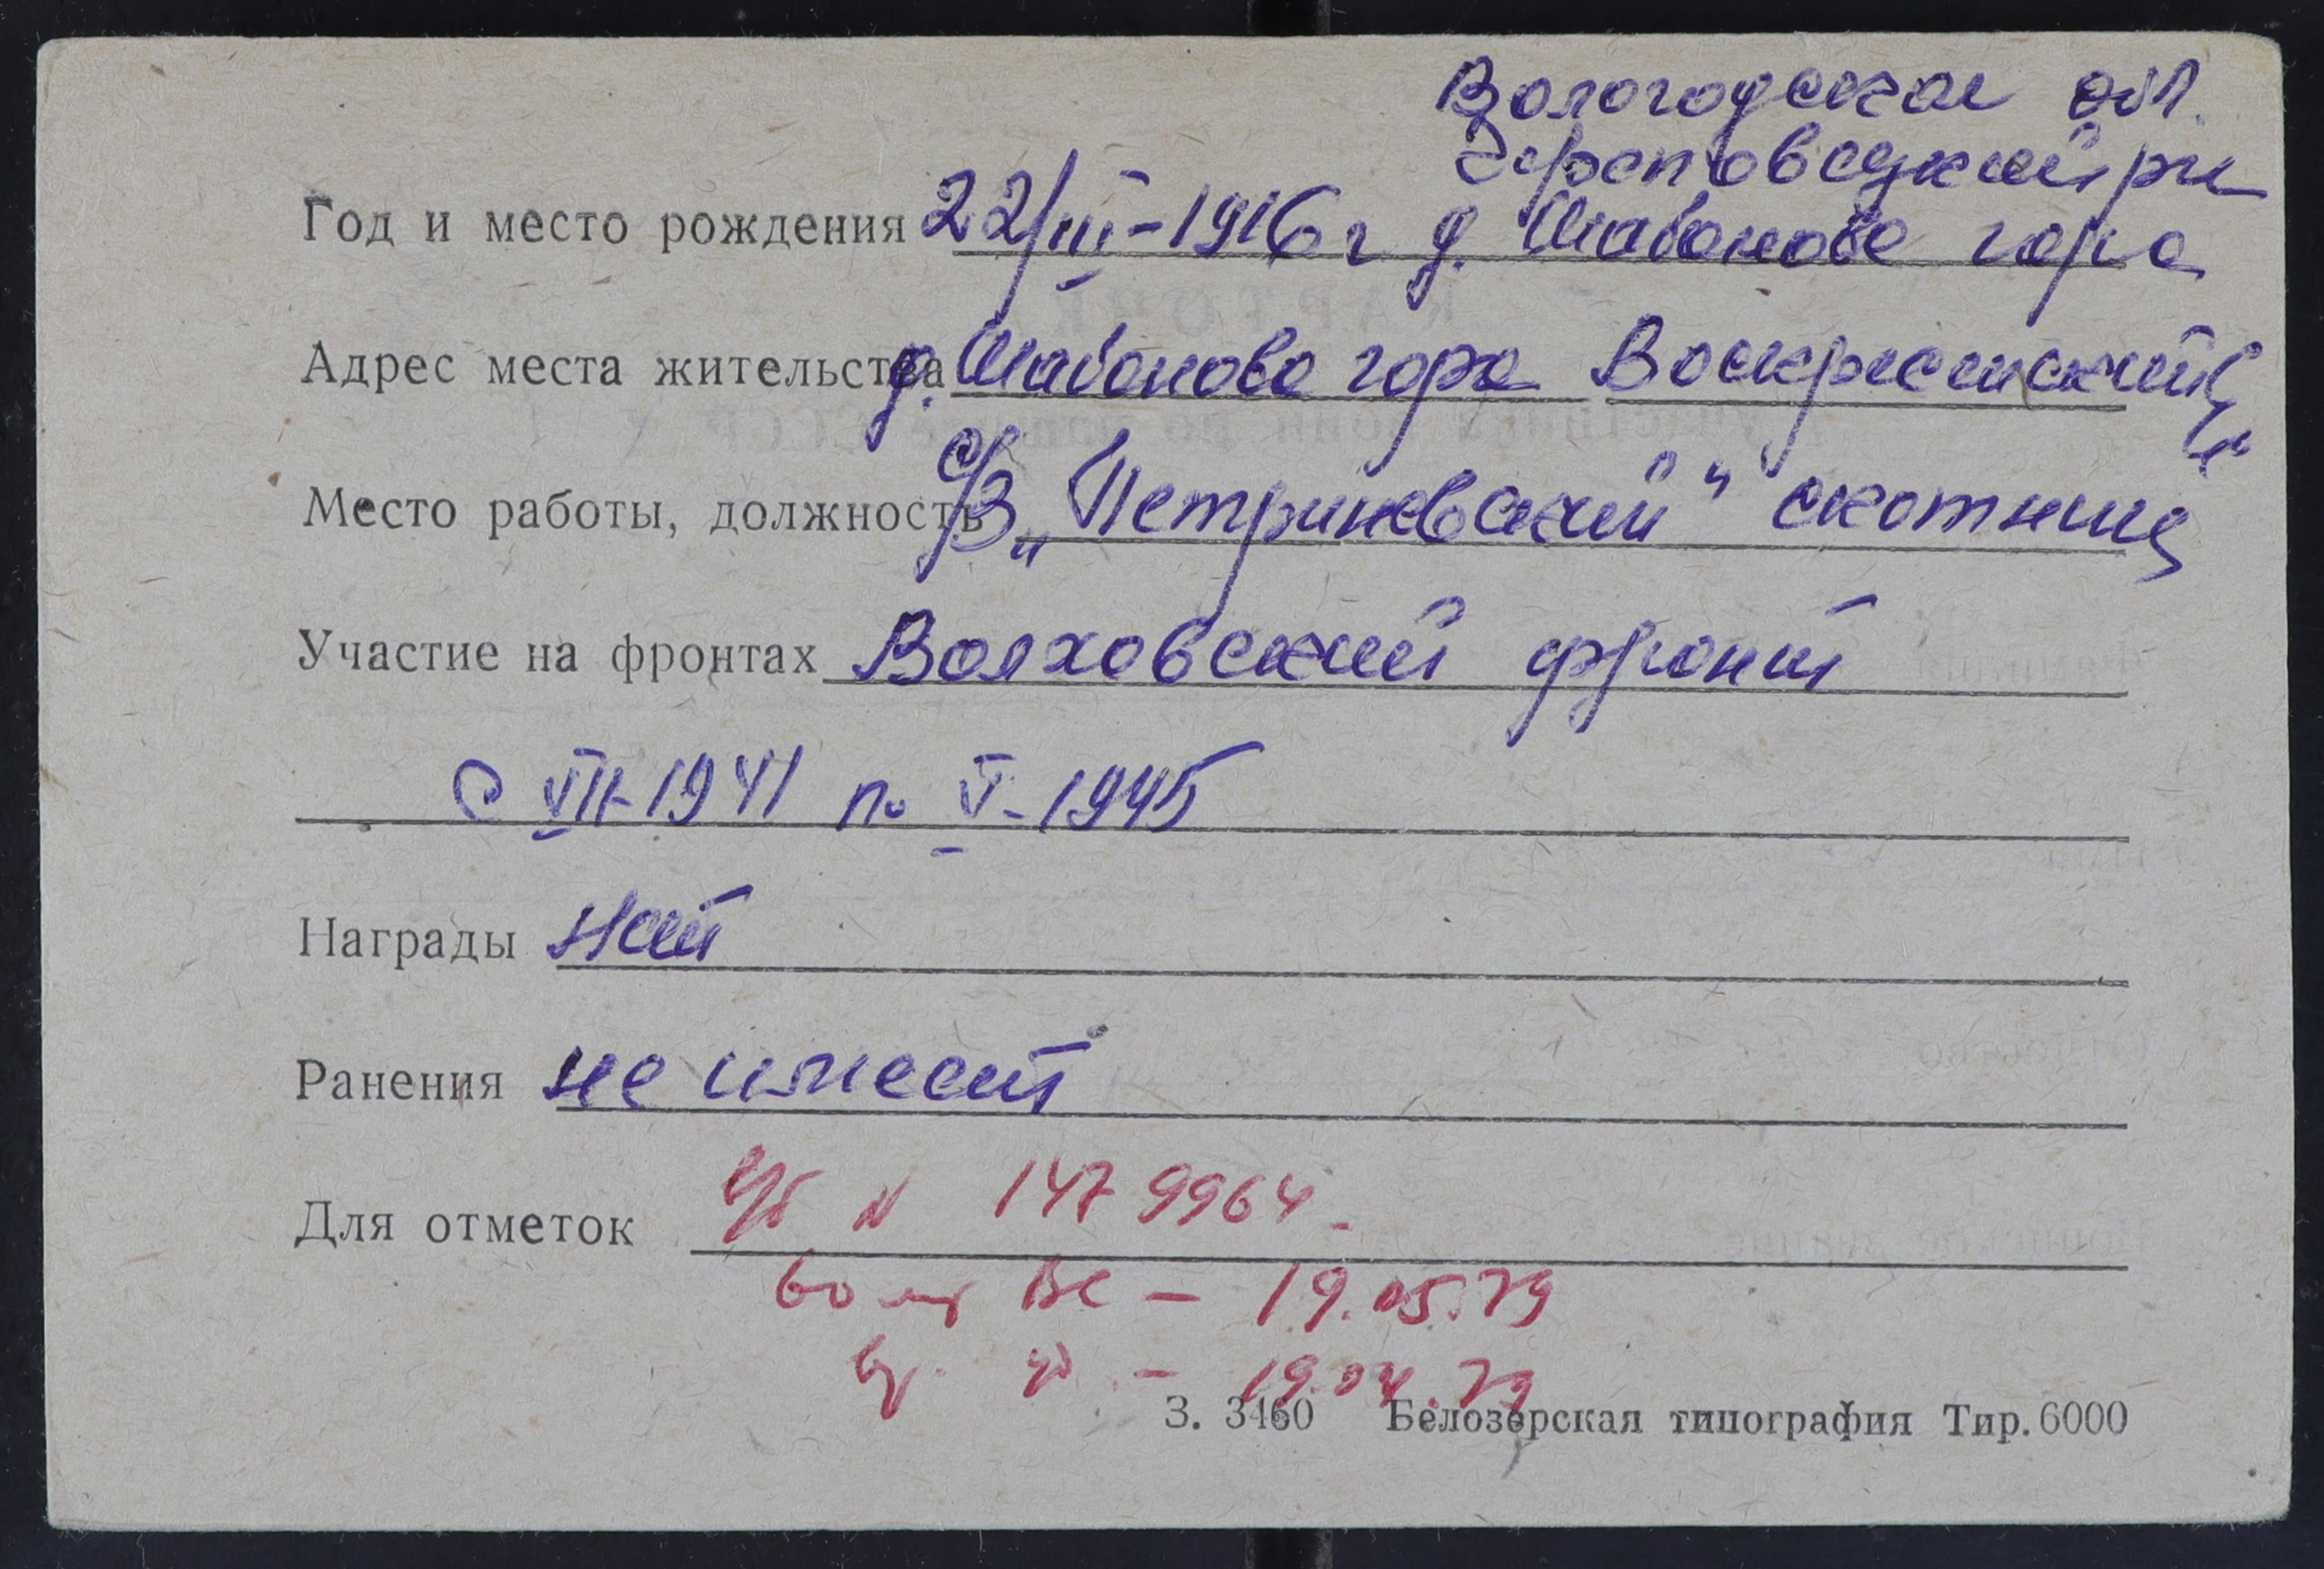 Вологодская обл.
Череповецкий рн
Год и место рождения 22/III-1916 г д. Шабанова гора
Адрес места жительства д. Шабанова гора Воскресенский с/с
Место работы, должность с/з „Петриневский" скотниц
Участие на фронтах Волховский фронт
с VII-1941 по V-1945
Награды нет
Ранения не имеет
Для отметок У/б N 1479964-
60 лет ВС - 19.05.79
- 19.04.79
З. 3460 Белозерская типография Тир. 6000